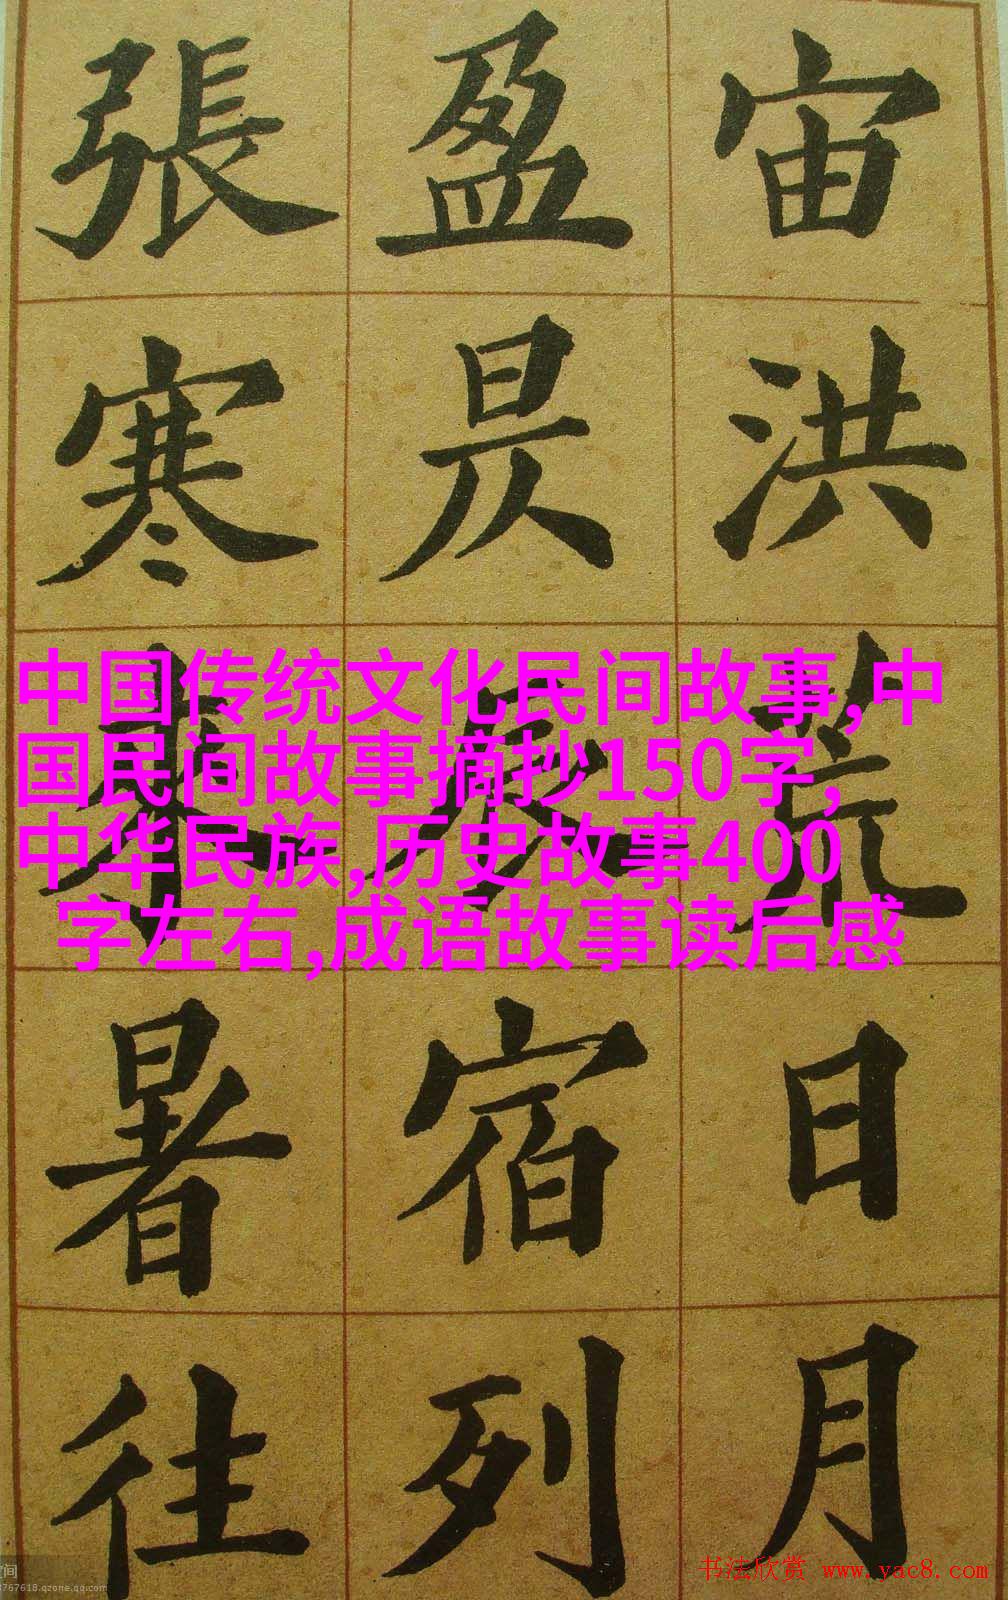 宙洪荒日月
盈昃辰宿列
張寒來暑往
中国传统文化民间故事,中
国民间故事摘抄150字,
中华民族,历史故事400
字左右,成语故事读后感
书法欣赏 www.yac8.com
间
767618.qzone.qq.com